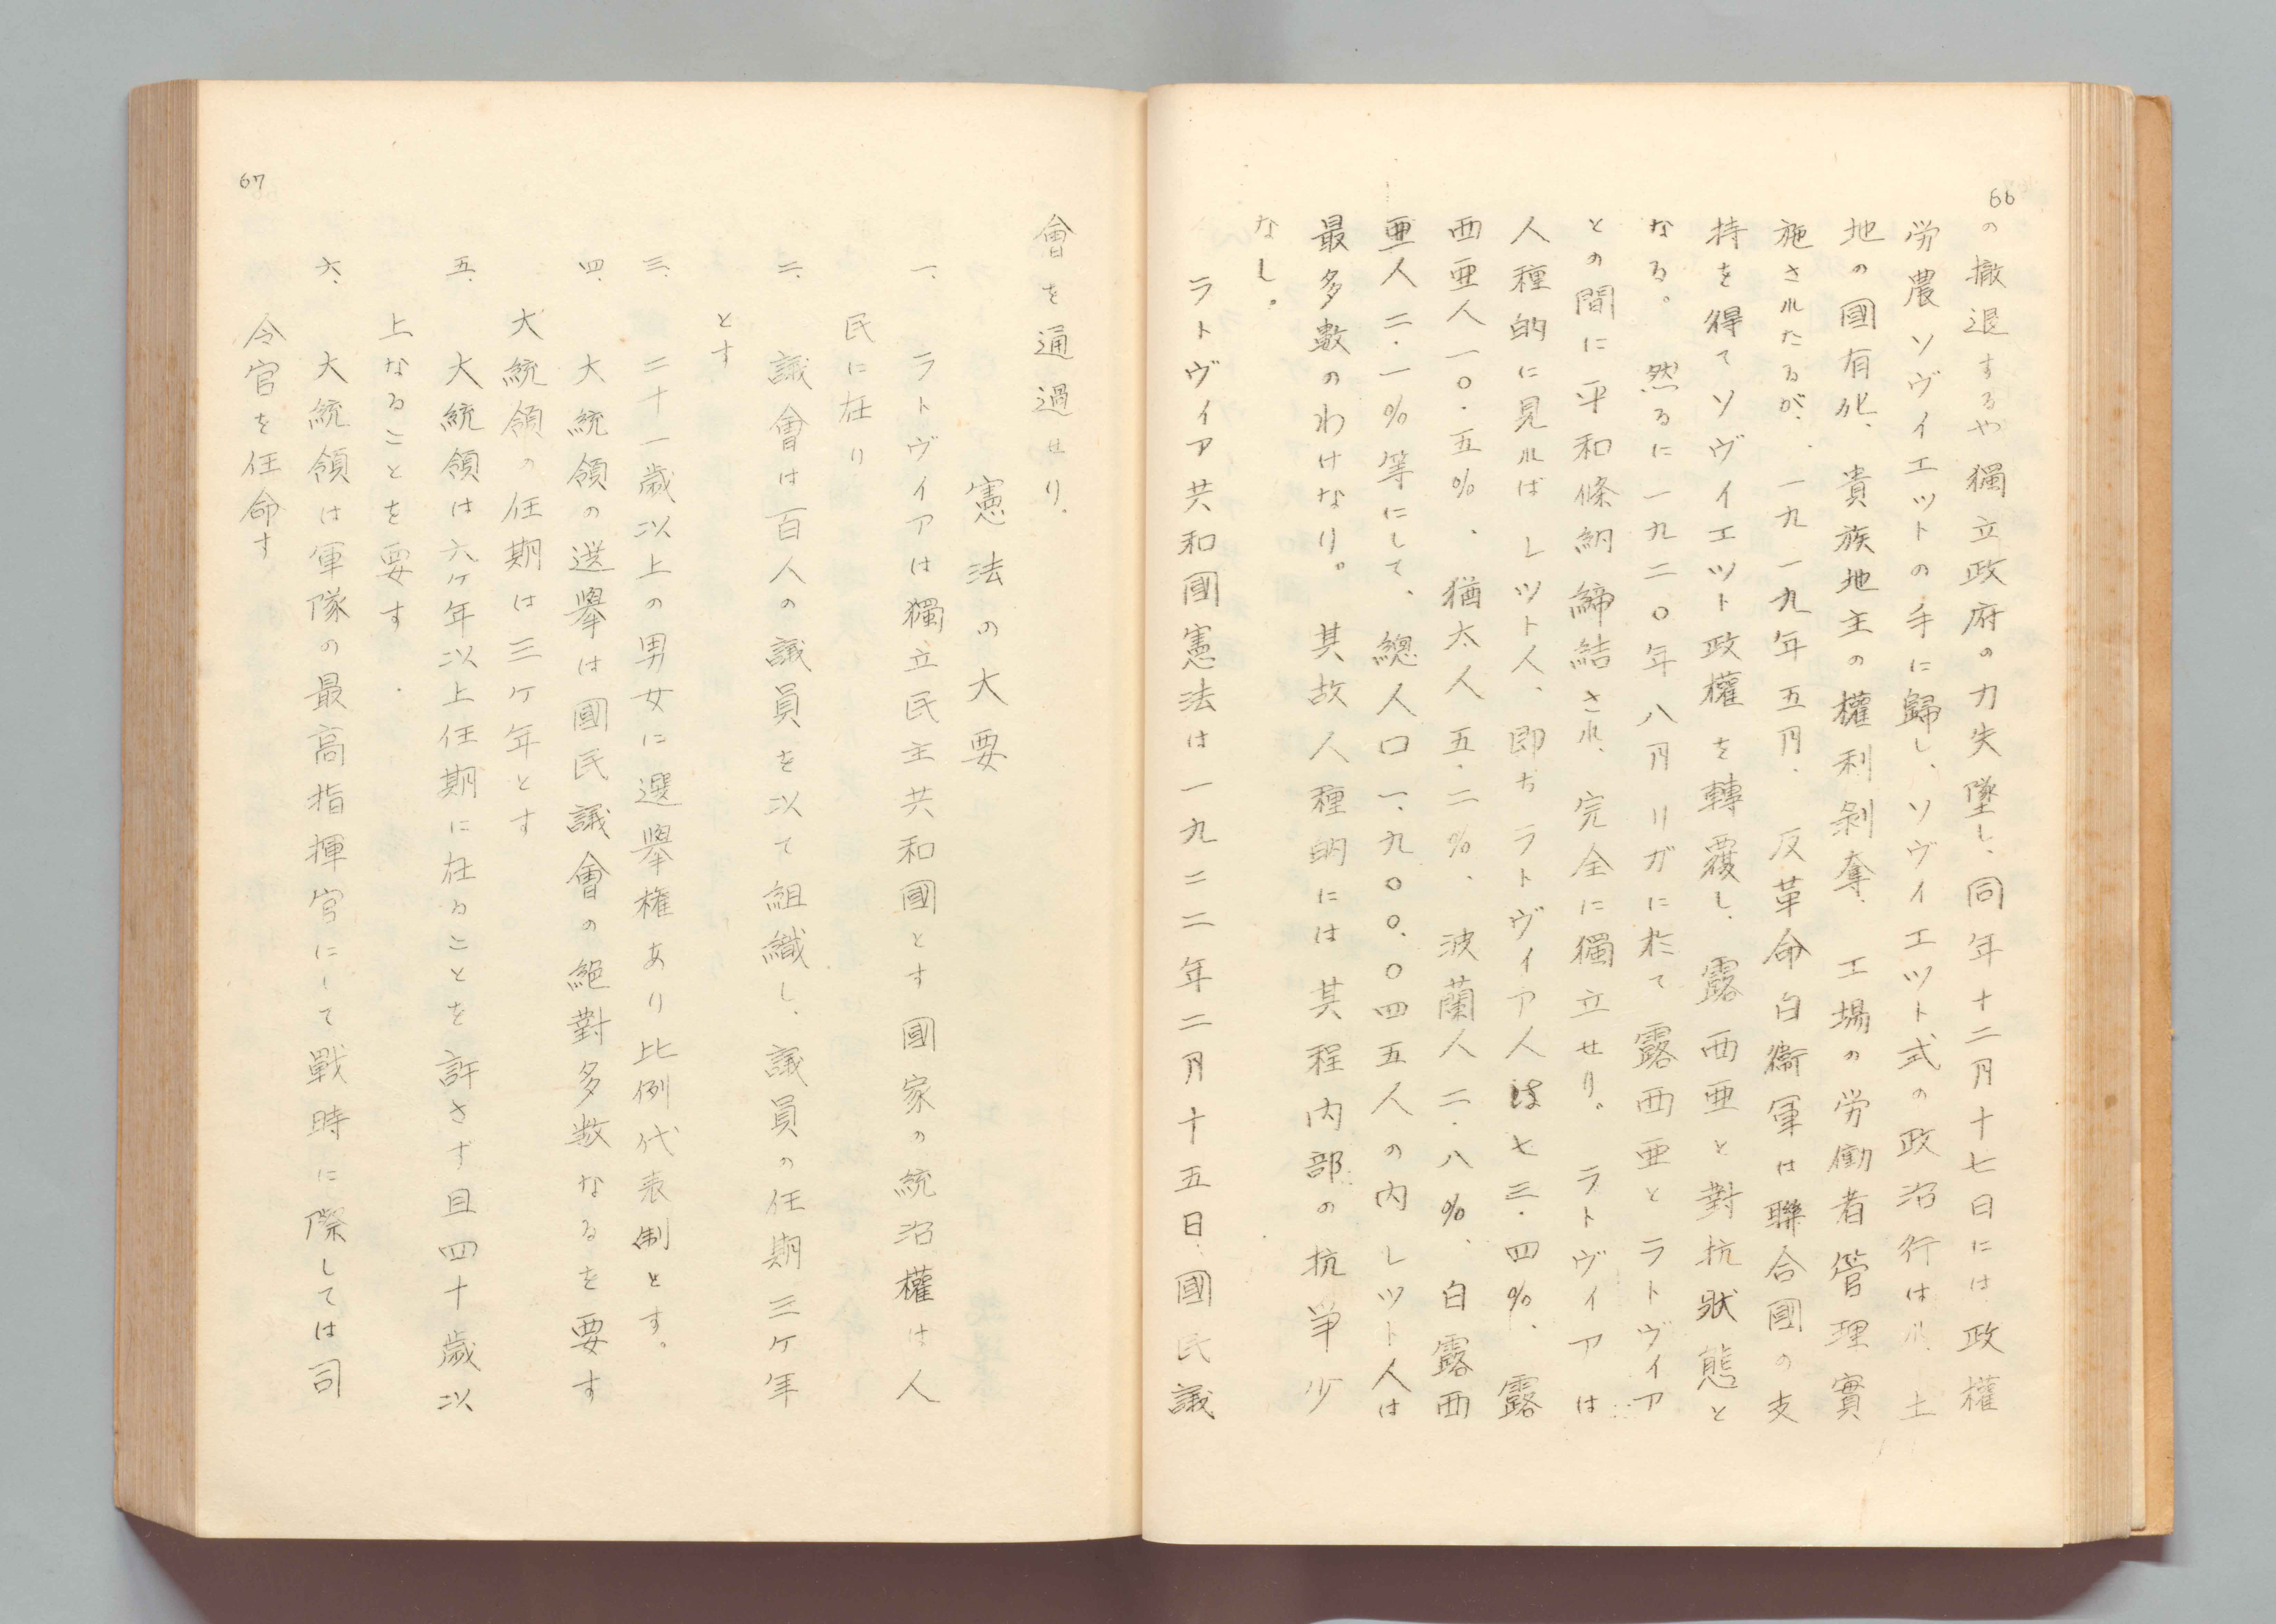 66
の撤退するや獨立政府の力失墜し、同年十二月十七日には政權
労農ソヴイエツトの手に歸し、ソヴイエツト式の政治行はれ、土
地の國有化、貴族地主の權利剝奪、工場の労働者管理實
施されたるが、一九一九年五月、反革命白衞軍は聯合國の支
持を得てソヴイエツト政權を轉覆し、露西亜と對抗狀態と
なる。然るに一九二〇年八月リガに於て露西亜とラトヴイア
との間に平和條納締結され、完全に獨立せり。ラトヴイアは
人種的に見ればレツト人、即ちラトヴイア人は七三・四%、露
西亜人一〇・五%、猶太人五・二%、波蘭人二・八%、白露西
亜人二・一%等にして、總人口一、九〇〇、〇四五人の内レツト人は
最多數のわけなり。其故人種的には其程内部の抗争少
なし。
ラトヴイア共和國憲法は一九二二年二月十五日、國民議
會を通過せり。
憲法の大要
一、ラトヴイアは獨立民主共和國とす國家の統治權は人
民に在り
二、議會は百人の議員を以て組織し、議員の任期三ケ年
とす
三、二十一歲以上の男女に選擧権あり比例代表制とす。
四、大統領の選擧は國民議會の絕對多数なるを要す
大統領の任期は三ケ年とす
五、大統領は六ケ年以上任期に在ることを許さず且四十歲以
上なることを要す.
六、大統領は軍隊の最高指揮官にして戰時に際しては司
令官を任命す
67